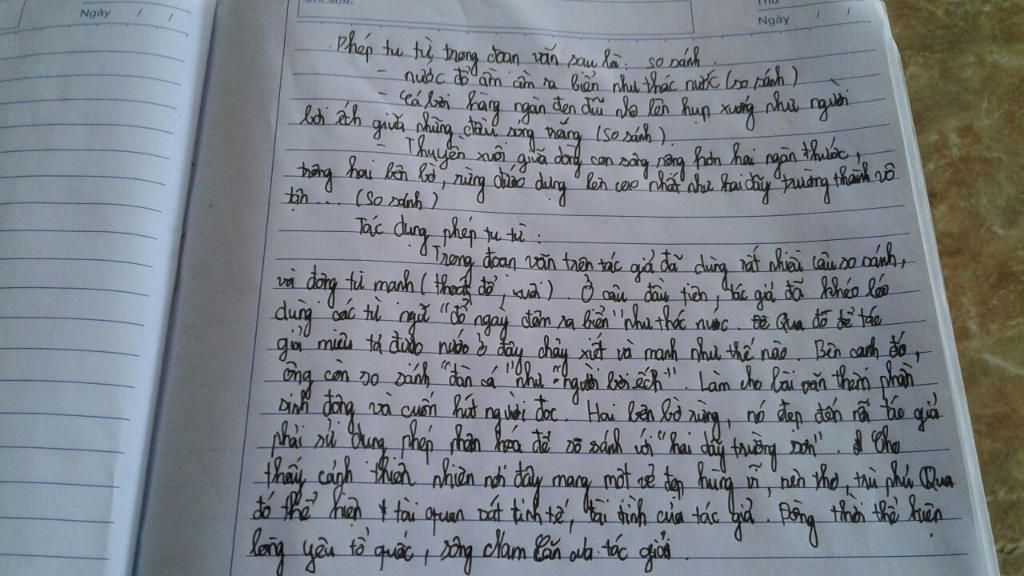 Ngày / /
Ngày / /
Phép tu từ trong đoan văn sau là: so sánh.
- nước đổ ầm ầm ra biển như thác nước (so sánh)
- "cá bơi hàng ngàn đen đũi nhô lên hụp xuống như người
bơi ếch giữa những đầu sóng trắng (so sánh)
- Thuyền xuôi giữa dòng con sông rộng hơn hai ngàn thước,
trông hai bên bờ, rừng đước dựng lên cao nhất như hai dãy trường thành vô
tận .... (so sánh)
Tác dụng phép tu từ:
Trong đoan văn trên tác giả đã dùng rất nhiều câu so sánh,
và đông từ manh (thoát đổ, xuôi). Ở câu đầu tiên, tác giả đã khéo léo
dùng các từ ngữ "đổ ngày đêm ra biển" như thác nước. Qua đó để tác
giả miêu tả được nước ở đây chảy xiết và manh như thế nào. Bên canh đó,
ông còn so sánh "đàn cá" như "người bơi ếch". Làm cho bài văn thêm phần
sinh đông và cuốn hút người đoc. Hai bên bờ rừng, nó đẹp đến nỗi tác giả
phải sử dung phép nhân hóa để so sánh với "hai dãy trường sơn". Cho
thấy cảnh thiên nhiên nơi đây mang một vẻ đẹp hùng vĩ, nên thơ, trù phú Qua
đó thể hiện tài quan sát tinh tế, tài tình của tác giả. Đồng thời thể hiện
lòng yêu tổ quốc, sông Nam Căn của tác giả.